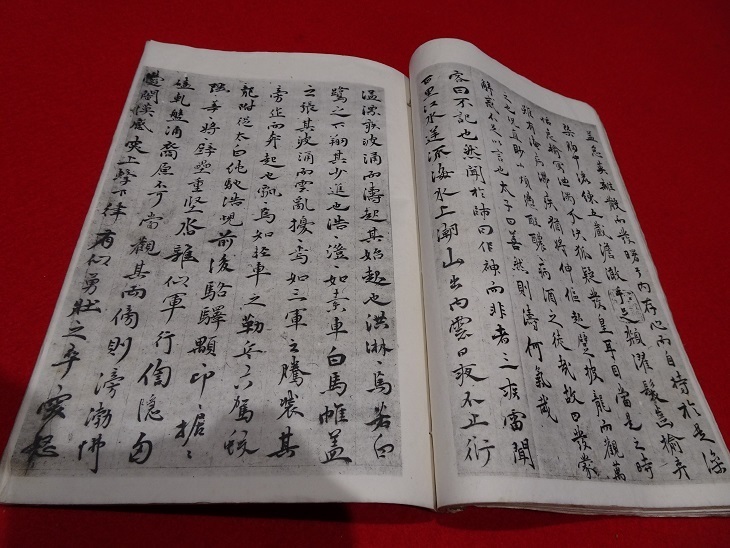 忽無散而發曙兮內存心而自持於是澡
槩胸中洒練五藏澹澉手足頮濯髮齒揄弃
恬怠輸寫淟濁分決狐疑發皇耳目當是之時
雖有淹病滯疾猶將伸傴起躄披聾而觀
之也直眇小煩懣酲醲病酒之徒哉故曰發蒙
解惑不足以言也太子曰善然則濤何氣哉
客曰不記也然聞於師曰似神而非者三疾雷聞
百里江水逆流海水上潮山出內雲日夜不止衍
溢漂疾波涌而濤起其始起也洪淋〻焉若白
鷺之下翔其少進也浩〻溰〻如素車白馬帷蓋
之張其波涌而雲亂擾〻焉如三軍之騰裝其
旁作而奔起也飄〻焉如輕車之勒兵六駕蛟
龍附從太白純馳浩蜺前後駱驛顒〻卬〻椐〻
彊〻莘〻將〻壁壘重堅沓雜似軍行訇隱匈
磕軋盤涌裔原不可當觀其兩傍則滂渤怫
鬱闇漠感突上擊下律有似勇壯之卒突怒